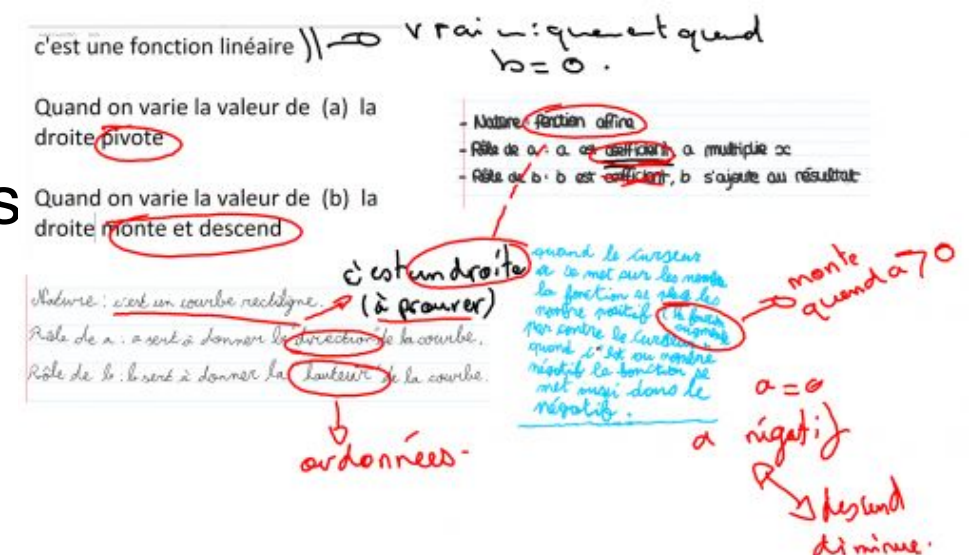 c'est une fonction linéaire )) vrai uniquement quand
b = 0 .
Quand on varie la valeur de (a) la
droite pivote
s
Quand on varie la valeur de (b) la
droite monte et descend
- Nature fonction affine
- Rôle de a : a est coefficient, a multiplie x
- Rôle de b : b est coefficient, b s'ajoute au résultat
c'est un droite
(à prouver)
Nature : c'est un courbe rectiligne.
Rôle de a : a sert à donner la direction de la courbe.
Rôle de b : b sert à donner la hauteur de la courbe.
ordonnées -
quand le curseur
a ce met sur les nombre
la fonction se place les
nombre positif ( la fonction
augmente
par contre le curseur
quand c'est au nombre
négatif la fonction se
met aussi dans le
négatif .
monte
quand a > 0
a = 0
a négatif
descend
diminue.